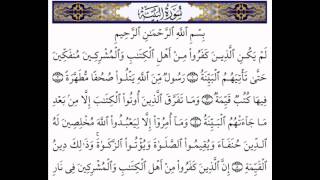 سُورَةُ البَيِّنَةِ
بِسْمِ اللَّهِ الرَّحْمَٰنِ الرَّحِيمِ
لَمْ يَكُنِ الَّذِينَ كَفَرُوا مِنْ أَهْلِ الْكِتَابِ وَالْمُشْرِكِينَ مُنفَكِّينَ
حَتَّىٰ تَأْتِيَهُمُ الْبَيِّنَةُ ۝ رَسُولٌ مِّنَ اللَّهِ يَتْلُوا صُحُفًا مُّطَهَّرَةً ۝
فِيهَا كُتُبٌ قَيِّمَةٌ ۝ وَمَا تَفَرَّقَ الَّذِينَ أُوتُوا الْكِتَابَ إِلَّا مِن بَعْدِ
مَا جَاءَتْهُمُ الْبَيِّنَةُ ۝ وَمَا أُمِرُوا إِلَّا لِيَعْبُدُوا اللَّهَ مُخْلِصِينَ لَهُ
الدِّينَ حُنَفَاءَ وَيُقِيمُوا الصَّلَاةَ وَيُؤْتُوا الزَّكَاةَ ۚ وَذَٰلِكَ دِينُ
الْقَيِّمَةِ ۝ إِنَّ الَّذِينَ كَفَرُوا مِنْ أَهْلِ الْكِتَابِ وَالْمُشْرِكِينَ فِي نَارِ